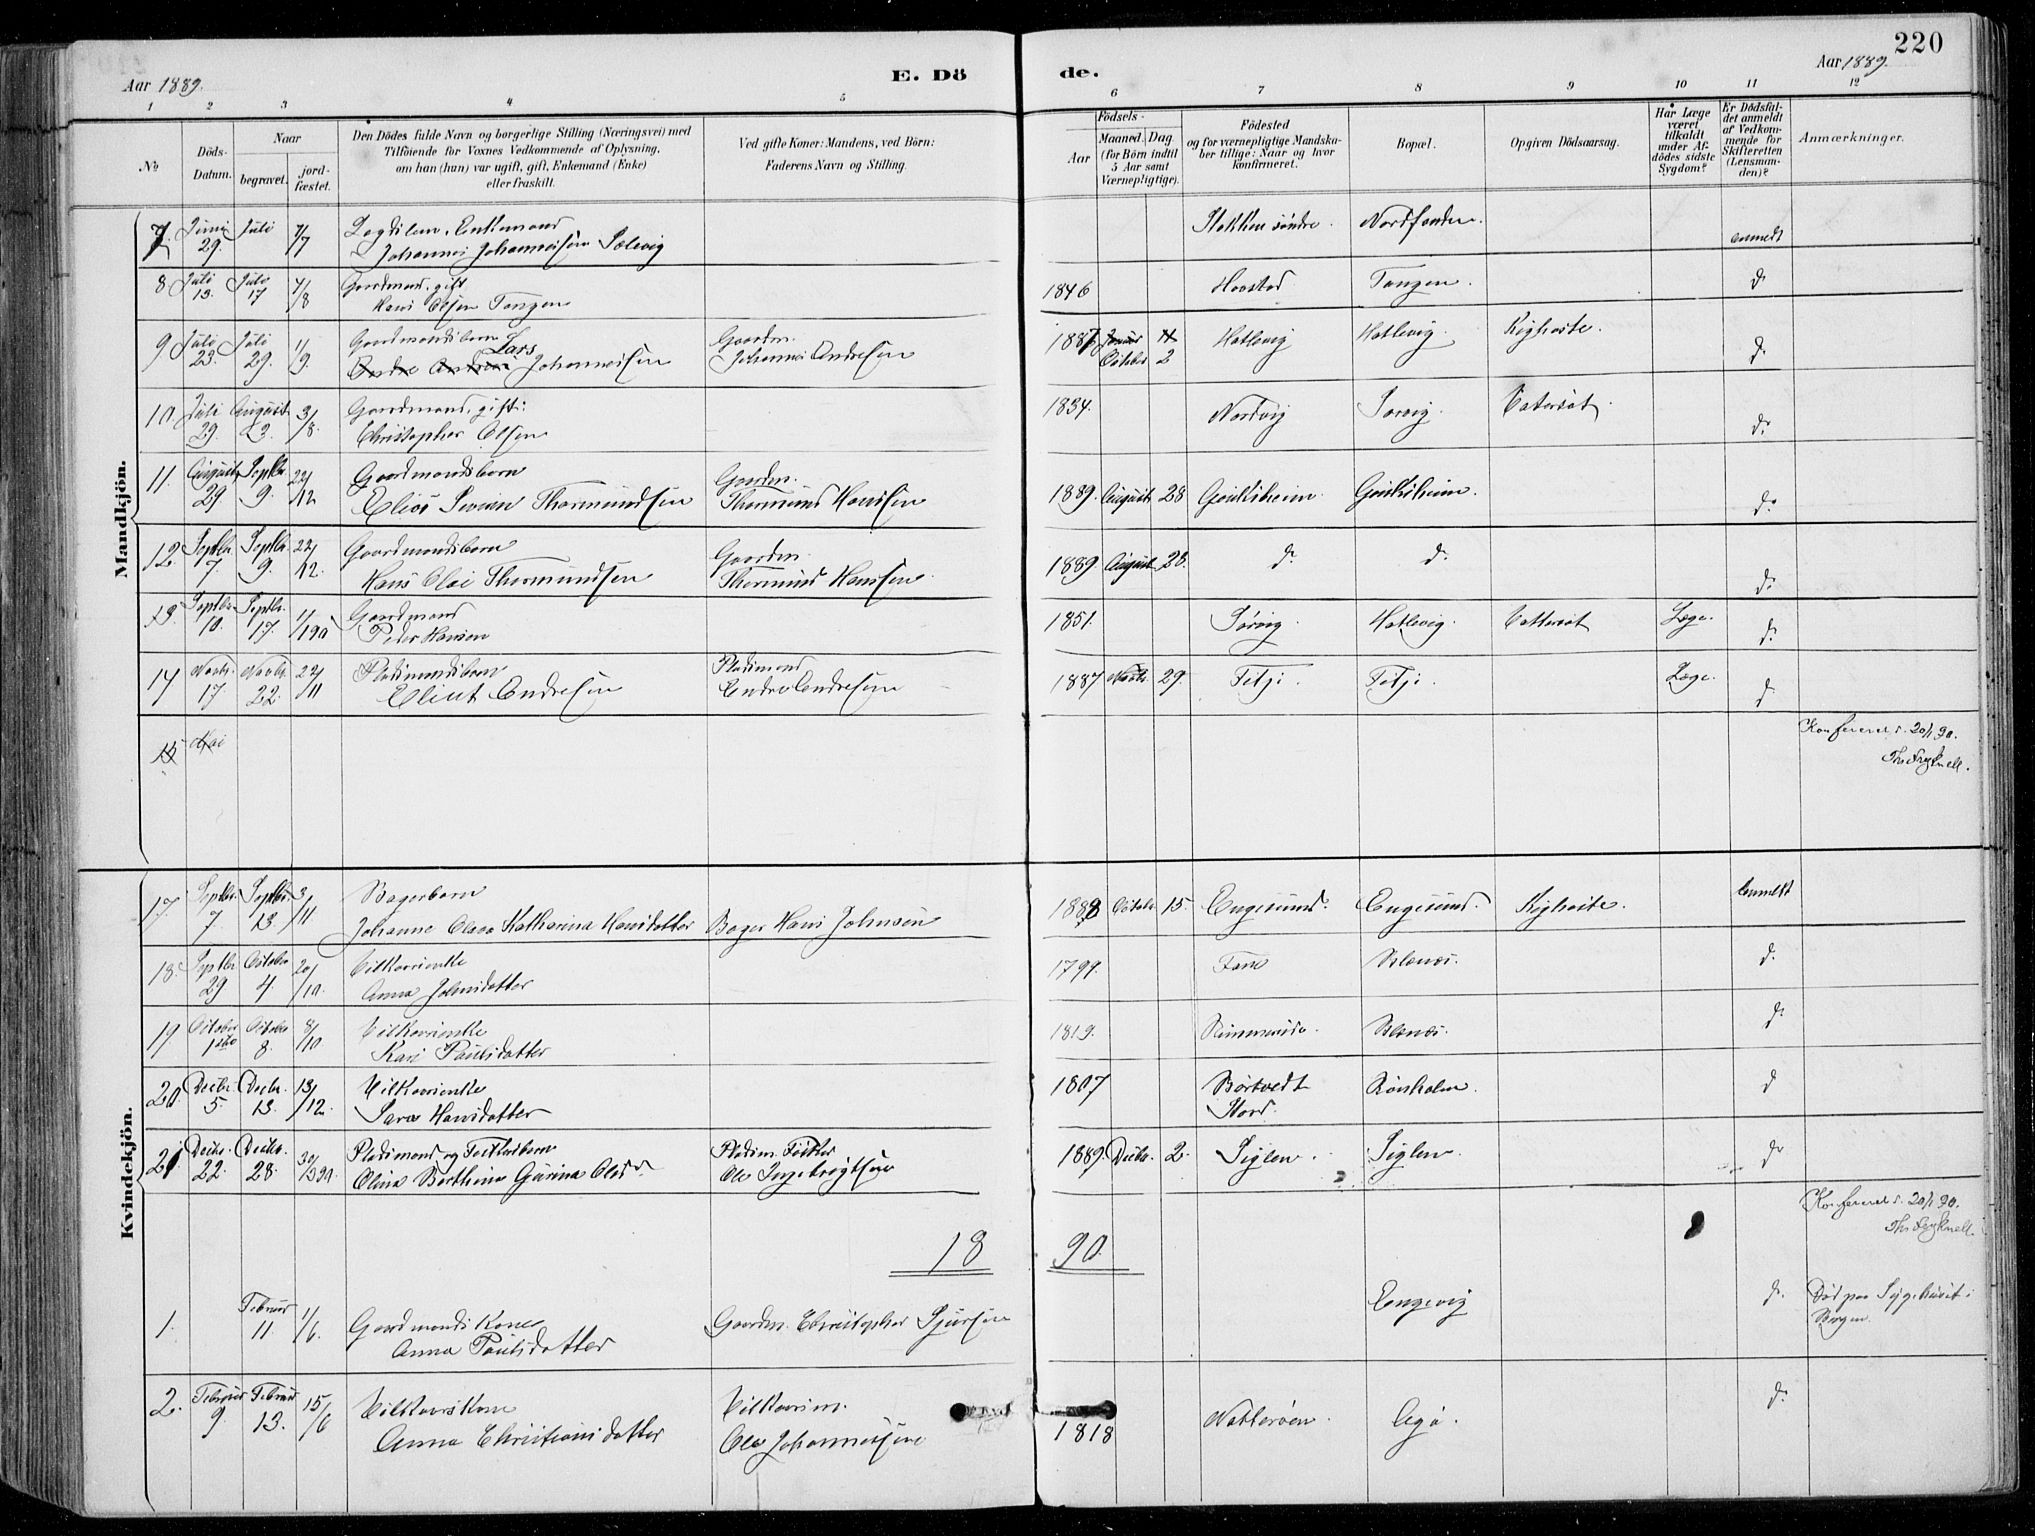 220
Aar 1889.
E. Dö
de.
Aar 1889.
1 2 3 4 5 6 7 8 9 10 11 12
No
Döds-
Datum.
Naar
begravet.
jord-
fæstet.
Den Dödes fulde Navn og borgerlige Stilling (Næringsvei) med
Tilföiende for Voxnes Vedkommende af Oplysning,
om han (hun) var ugift, gift, Enkemand (Enke)
eller fraskilt.
Ved gifte Koner: Mandens, ved Börn:
Faderens Navn og Stilling.
Födsels-
Aar
Maaned. Dag
(for Börn indtil
5 Aar samt
Værnepligtige).
Födested
og for værnepligtige Mandska-
ber tillige: Naar og hvor
konfirmeret.
Bopæl.
Opgiven Dödsaarsag.
Har Læge
været
tilkaldt
under Af-
dödes sidste
Sygdom?
Er Dödsfal-
det anmeldt
af Vedkom-
mende for
Skifteretten
(Lensman-
den)?
Anmærkninger.
Mandkjön.
7 Juni 29. Juli 7/7 Enkemand
Johannes Johannessen Sælevig
Stokken söndre. anmeldt
8 Juli 13. Juli 17 7/8 Gaardmand, gift
Hans Olsen Tangen
1846 Tangen. do
9 Juli 23. Juli 29. 1/9. Gaardmandsbarn Lars
Johannessen
Gaardm.
Johannes Andresen
October 2 Hatlevig Hatlevig. Kighoste. do
10 Juli 29. August 2. 3/8. Gaardmand, gift:
Christopher Olsen
1834. Nordvig do
11. August 29 Septbr. 9. 22/12 Gaardmandsbarn
Elias Thormundsen
Gaardm.
Thormund Hansen
1889. August 28 do
12 Septbr. 7 Septbr. 9. 22/12. Gaardmandsbarn
Hans Olai Thormundsen
Gaardm.
Thormund Hansen
1889. August 28. do do do
13. Septbr. 10. Septbr. 17. 1/190 Gaardmand
Peder Hansen
1851. Sørvig Hatlevig. Læge. do
14 Novbr. 17 Novbr. 22. 22/11 Pladsmandsbarn
Elint Andresen
Pladsmand
Andresen
1887 Novbr. 29. Titji. Titji. Læge. do
15 Mai
Konfereret d. 20/1 90.
Kvindekjön.
17. Septbr. 7 Septbr. 13. 3/11 Bagerbarn
Johanne Olava Katharina Hansdatter Bager Hans Johnsen
1888 Octobr. 15. Engesund. Engesund. Kighoste. anmeldt
18. Septbr. 29 October 4. 20/10. Vilkaarsenke
Anna Johnsdatter
1799. do
19 October 1ste October 8. 8/10 Vilkaarsenke
Kari Paulsdatter
1819. do
20. Decbr. 5. Decbr. 13. 13/12. Vilkaarsenke
Sara Hansdatter
1807 Børtvedt
Stord. Rønholm. do
21 Decbr. 22. Decbr. 28. 30/1290. Pladsmand og
Olina Berthina Gurina Olsdr
Pladsm.
Ole Ingebrigtsen
1889. Decbr. 2. Siglen. Siglen. do
Konfereret d. 20/1 90.
18 90.
1. Februar 11. 1/6. Gaardmands Kone
Anna Paulsdatter
Gaardm. Christopher Sjursen
Engevig do. Död paa Sygehuset i
Bergen.
2. Februar 9. Februar 13. 15/6 Vilkaarskone
Anna Christiansdatter
Vilkaarsm.
Ole Johannessen
1818 Natterøen. Agø. do